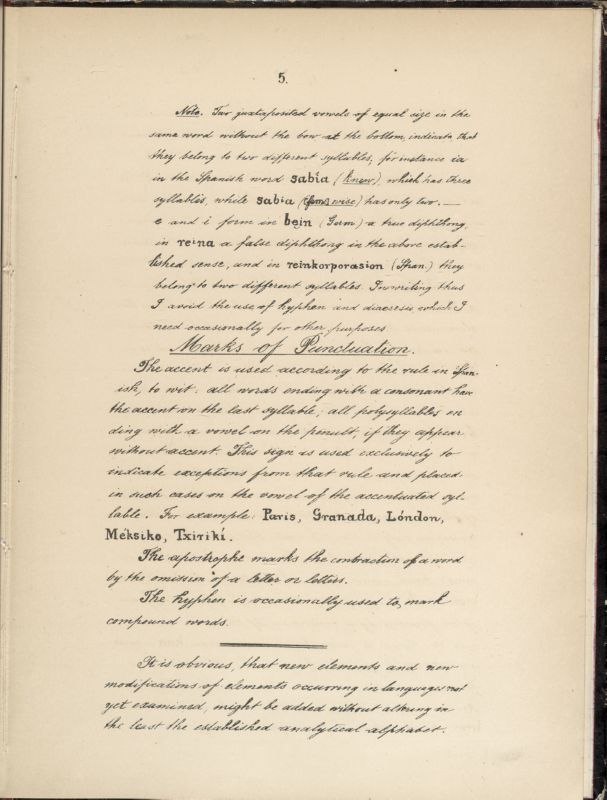 5.
Note. Two juxtaposited vowels of equal size in the
same word without the bow at the bottom, indicate, that
they belong to two different syllables; for instance ia
in the Spanish word sabía (knew), which has three
syllables, while sabia (fem. wise) has only two. —
e and i form in bein (Germ) a true diphthong,
in reina a false diphthong in the above estab-
lished sense, and in reinkorporasion (Span.) they
belong to two different syllables. In writing thus
I avoid the use of hyphen and diaeresis, which I
need occasionally for other purposes.
Marks of Punctuation.
The accent is used according to the rule in Span-
ish, to wit: all words ending with a consonant have
the accent on the last syllable; all polysyllables en
ding with a vowel on the penult, if they appear
without accent. This sign is used exclusively to
indicate exceptions from that rule and placed
in such cases on the vowel of the accentuated syl-
lable. For example: Paris, Granada, Lóndon,
Méksiko, Txirikí.
The apostrophe marks the contraction of a word
by the omission of a letter or letters.
The hyphen is occasionally used to mark
compound words.
It is obvious, that new elements and new
modifications of elements occurring in languages not
yet examined, might be added without altering in
the least the established analytical alphabet.